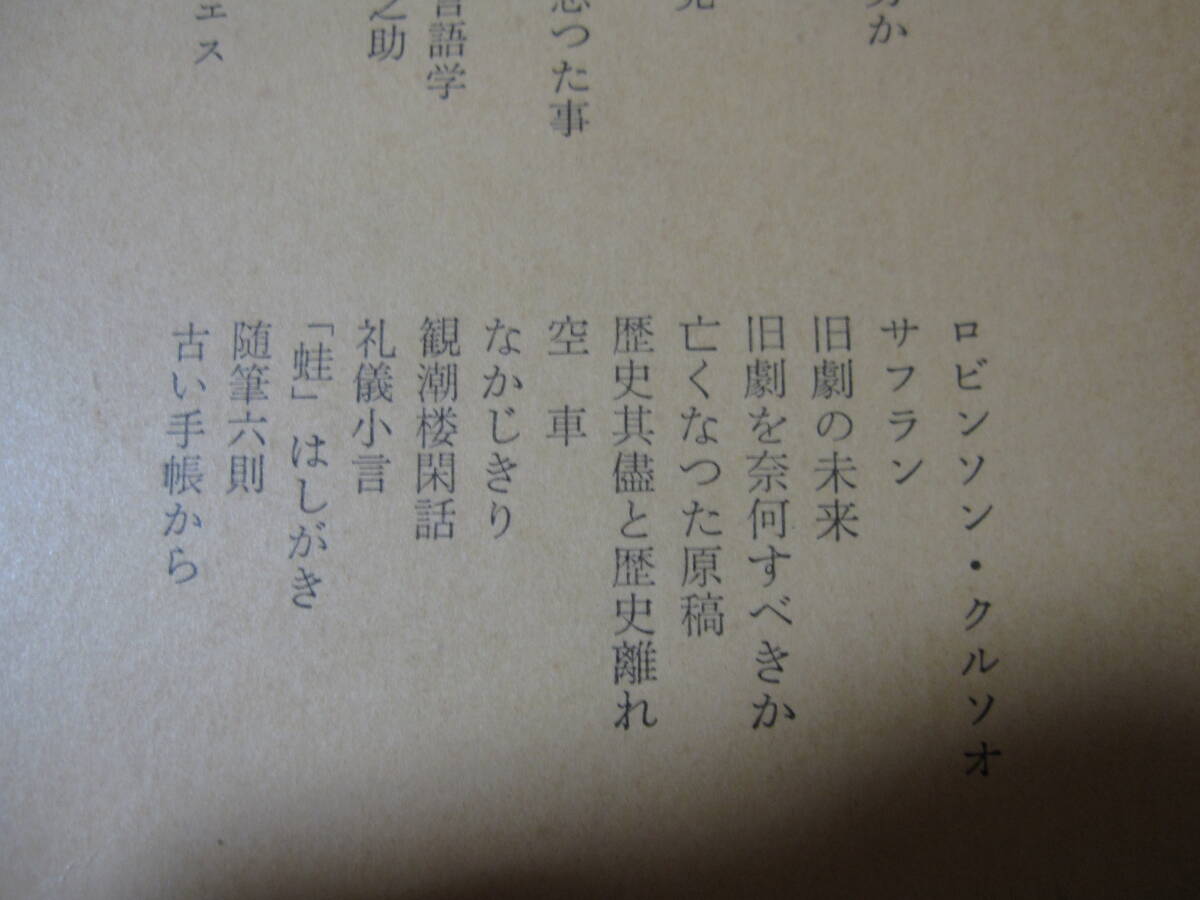 か
思つた事
言語学
之助
ェス
ロビンソン・クルソオ
サフラン
旧劇の未来
旧劇を奈何すべきか
亡くなつた原稿
歴史其儘と歴史離れ
空車
なかじきり
観潮楼閑話
礼儀小言
「蛙」はしがき
随筆六則
古い手帳から